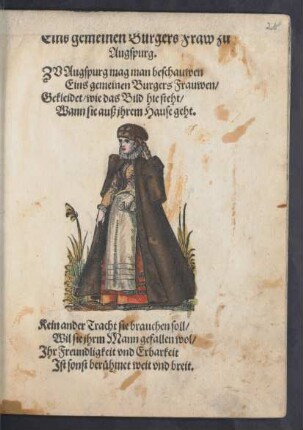 Eins gemeinen Burgers Fraw zu
Augspurg.
ZV Augspurg mag man beschauwen
Eins gemeinen Burgers Frauwen/
Gekleidet/wie das Bild hie steht/
Wann sie auß ihrem Hause geht.
Kein ander Tracht sie brauchen soll/
Wil sie ihrm Mann gefallen wol/
Ihr Freundligkeit vnd Erbarkeit
Ist sonst berühmet weit vnd breit.